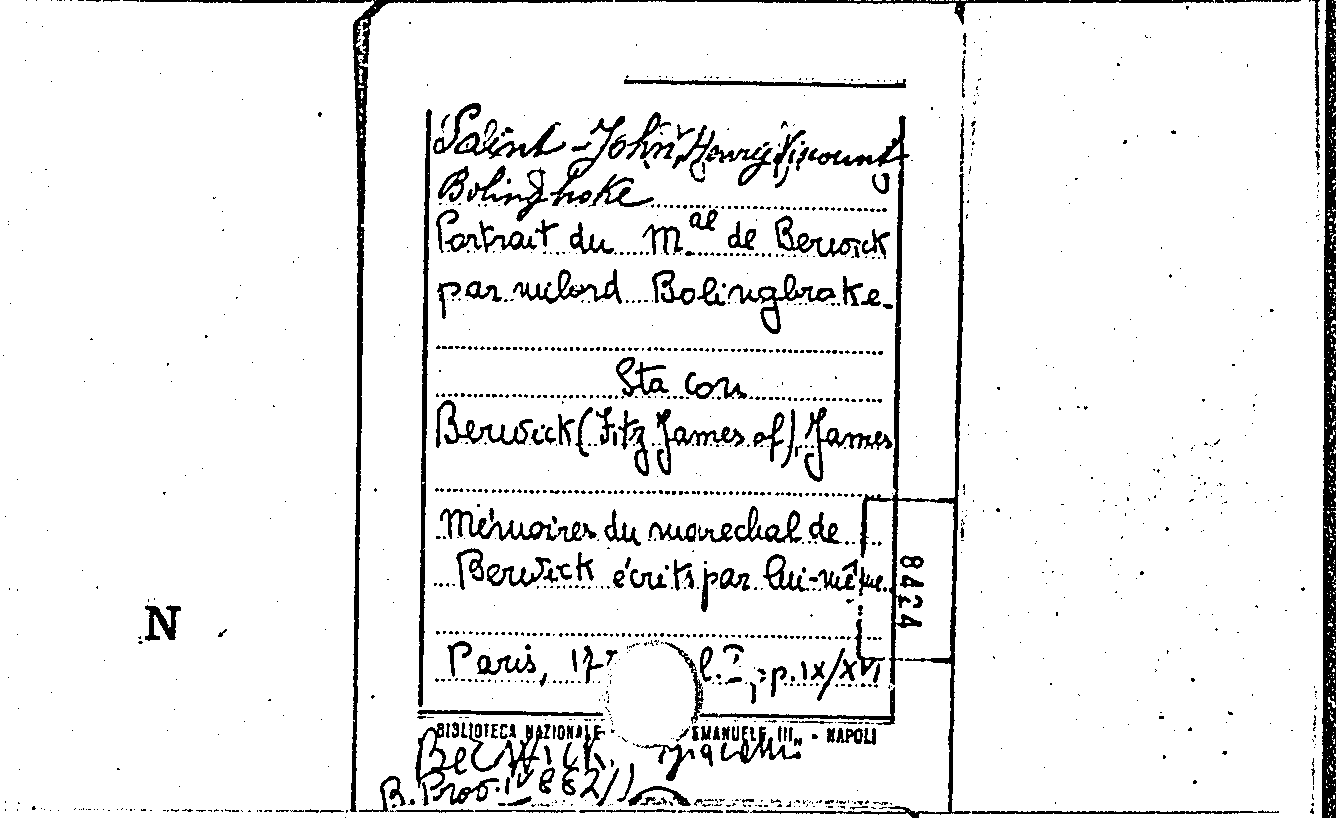 Saint-John, Henry Viscount
Bolingbroke
Portrait du M.al de Berwick
par milord Bolingbroke.
Sta con
Berwick (Fitz James of), James
Mémoires du marechal de
Berwick écrits par lui-même
8424
N
Paris, 17 p. IX/XVI
BIBLIOTECA NAZIONALE EMANUELE III„ - NAPOLI
Berwick.
B. Prov. IV 882/1